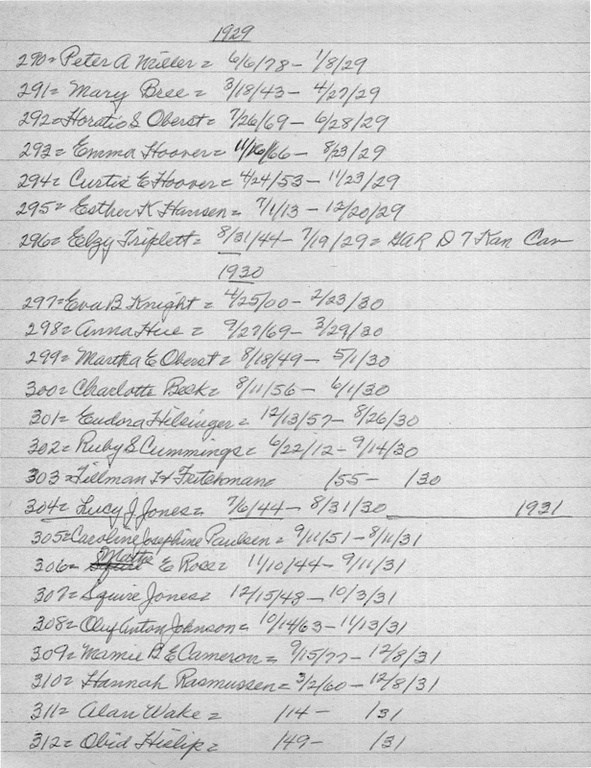 1929
290= Peter A Miller = 6/6/78 - 1/8/29
291= Mary Bree = 3/18/43 - 4/27/29
292= Horatio S Oberst = 7/26/69 - 6/28/29
293= Emma Hoover = 11/16/66 - 8/23/29
294= Curtis E Hoover = 4/24/53 - 11/23/29
295= Esther K Hansen = 7/1/13 - 12/20/29
296= Elzy Triplett = 8/31/44 - 7/19/29 = GAR D 7 Kan Cav
1930
297= Eva B Knight = 4/25/00 - 2/23/30
298= Anna Hue = 9/27/69 - 3/29/30
299= Martha E Oberst = 8/18/49 - 5/1/30
300= Charlotte Beck = 8/11/56 - 6/1/30
301= Eudora Hilsinger = 12/13/57 - 8/26/30
302= Ruby S Cummings = 6/22/12 - 9/14/30
303= Tillman H Fritchman = /55 - /30
304= Lucy J Jones = 7/6/44 - 8/31/30 1931
305= Caroline Josephine Paulsen = 9/11/51 - 8/11/31
306= E Ross = 11/10/44 - 9/11/31
307= Squire Jones = 12/15/48 - 10/3/31
308= Oluf Anton Johnson = 10/14/63 - 11/13/31
309= Mamie B E Cameron = 9/15/77 - 12/8/31
310= Hannah Rasmussen = 3/2/60 - 12/8/31
311= Alan Wake = /14 - /31
312= Obid Hislip = /49 - /31